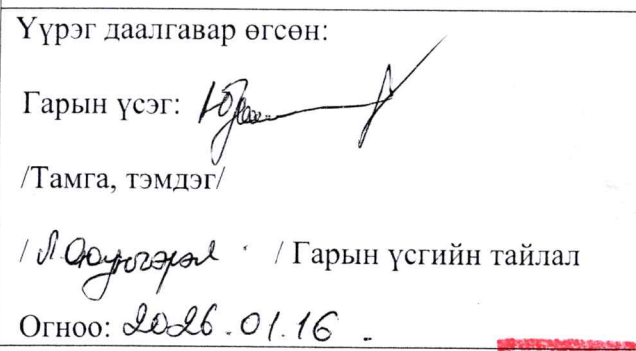 Үүрэг даалгавар өгсөн:
Гарын үсэг:
/Тамга, тэмдэг/
/ Л. Оюунгэрэл / Гарын үсгийн тайлал
Огноо: 2026.01.16.